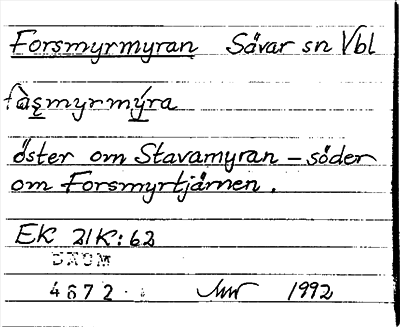 Forsmyrmyran Sävar sn Vbl
fàșmyrmýra
öster om Stavamyran – söder
om Forsmyrtjärnen.
EK 21K:62
DAUM
4672 1992